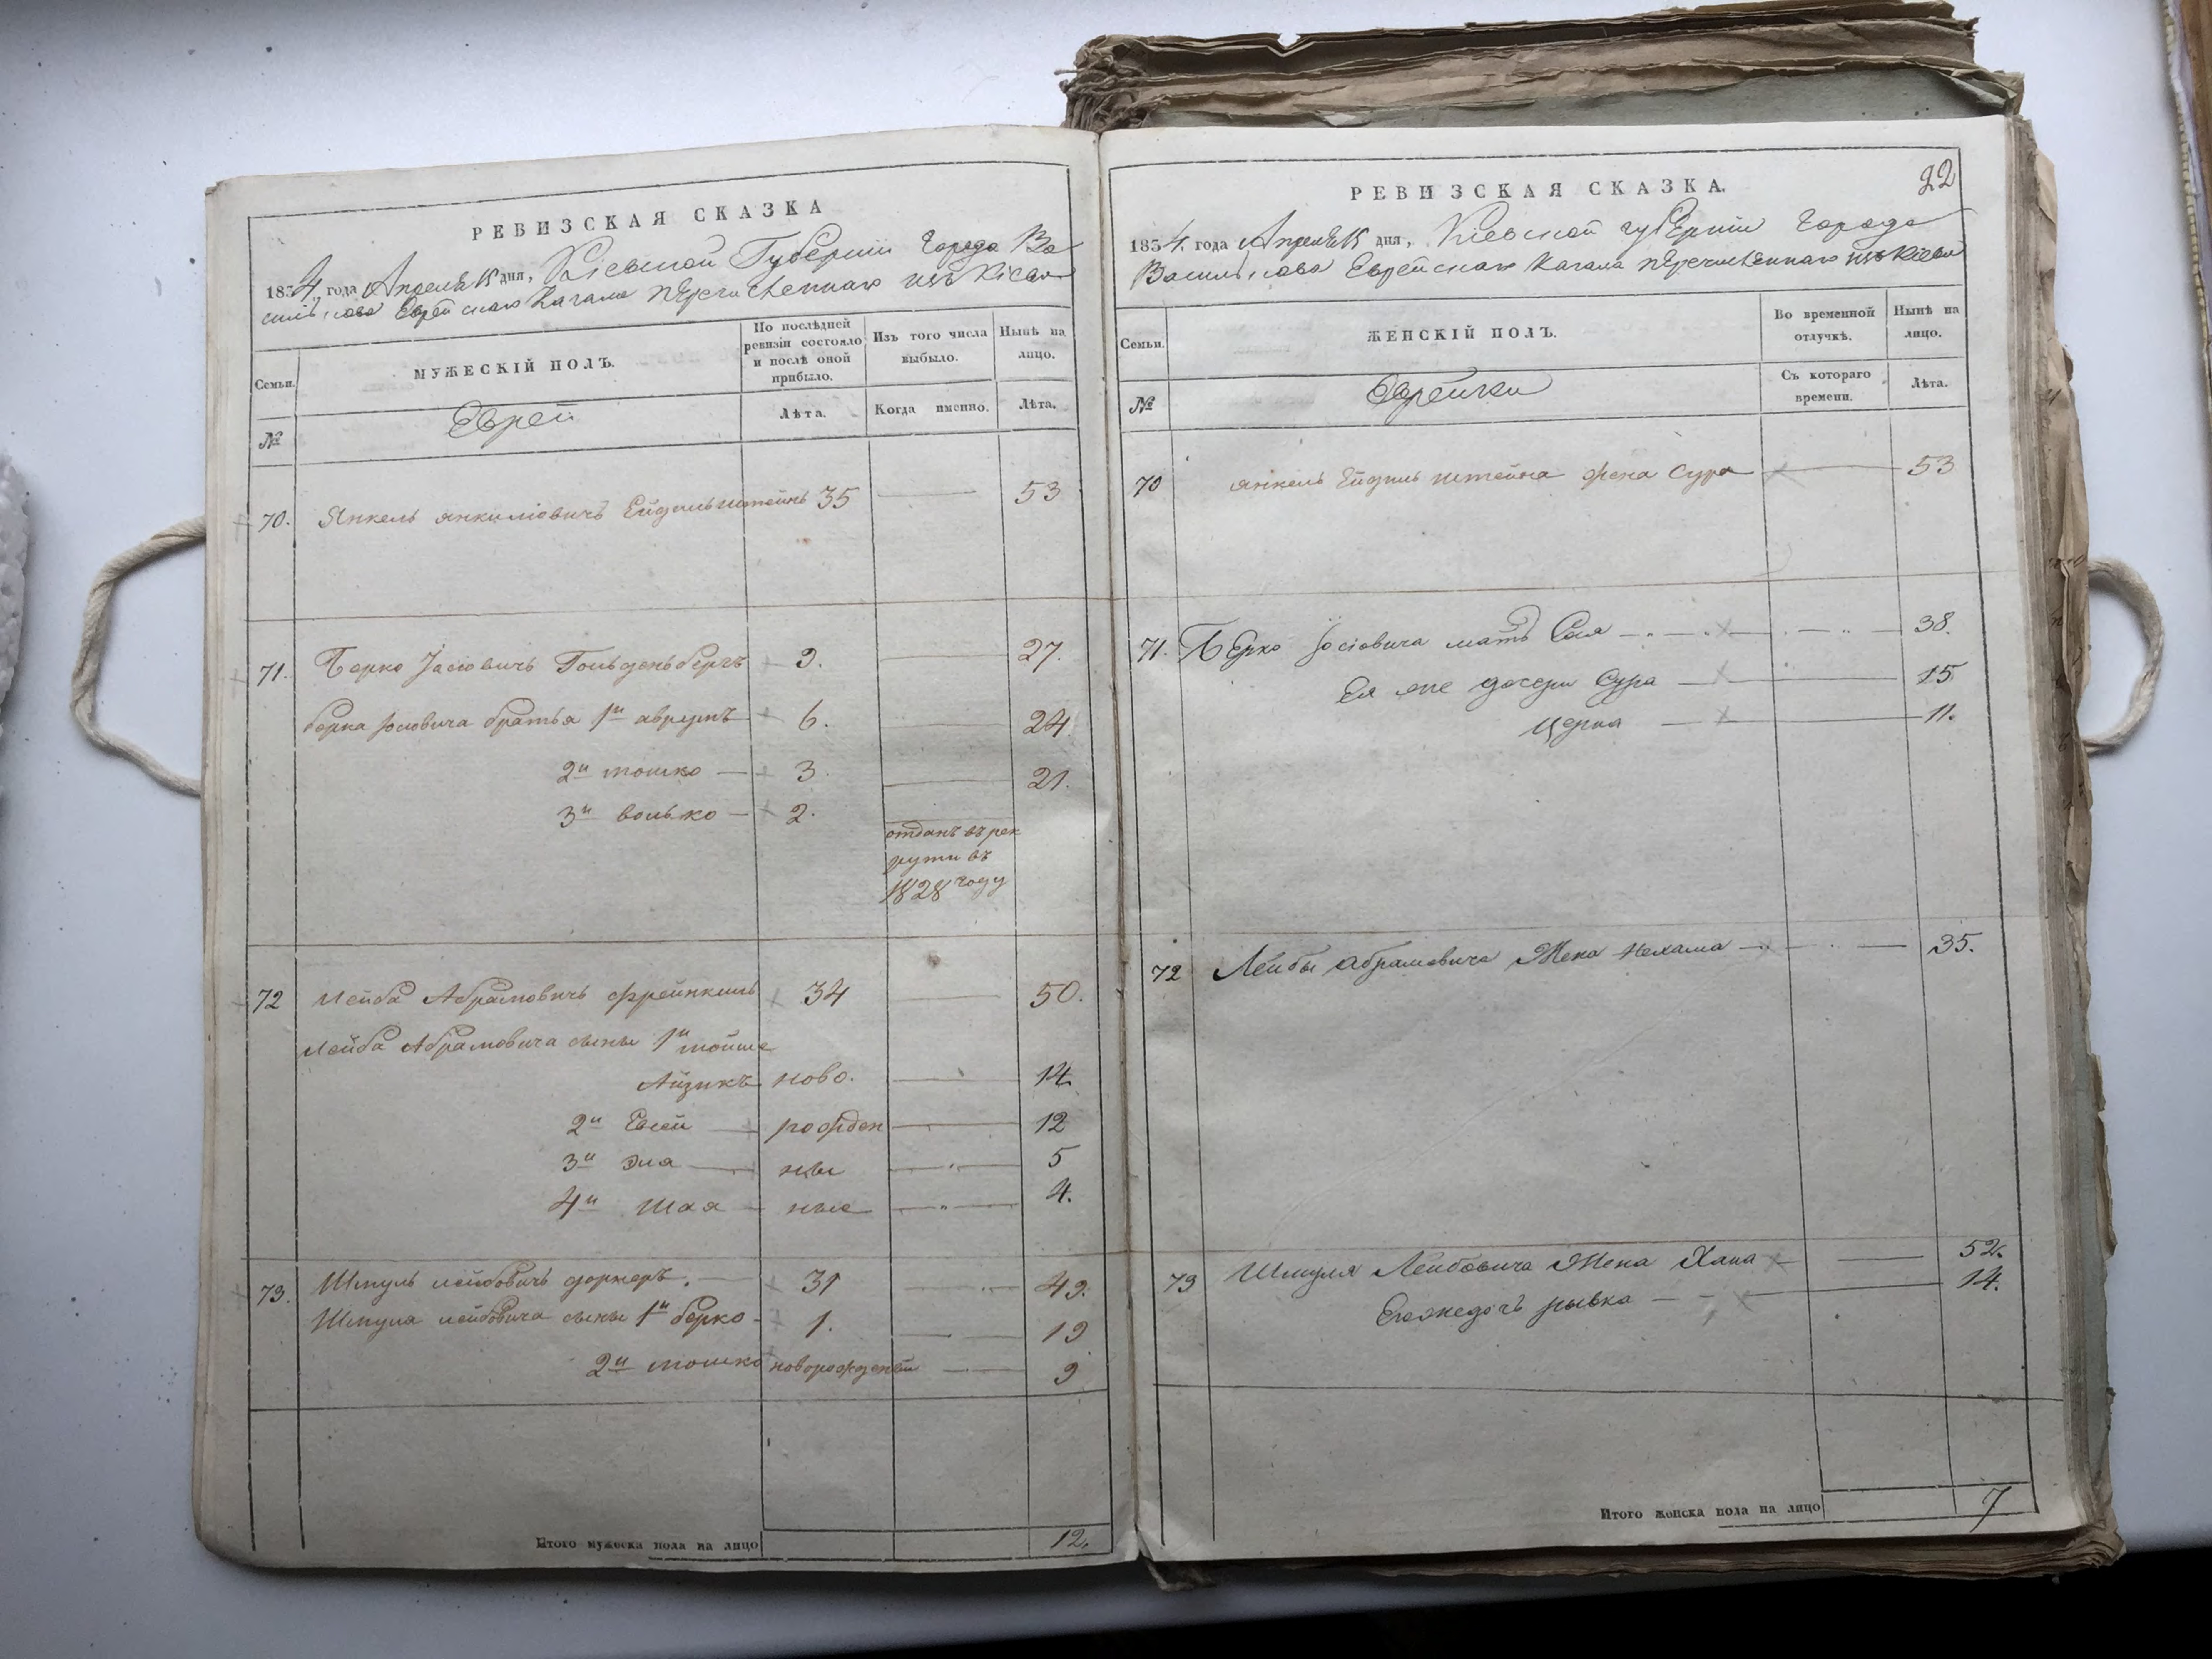 РЕВИЗСКАЯ СКАЗКА
1834 года Апреля 15 дня, Кіевской Губерніи Города Ва
силькова Еврейскаго Кагала перечисленнаго изъ Кіева
Семьи.
МУЖЕСКІЙ ПОЛЪ.
По послѣдней ревизіи состояло и послѣ оной прибыло.
Изъ того числа выбыло.
Нынѣ на лицо.
№
Еврей
Лѣта.
Когда именно.
Лѣта.
70. Янкель Янкиліовичъ Ейдильштейнъ 35 — 53
71. Берко Іосіовичъ Гольденбергъ 9. — 27.
Берка Іосіовича братья 1й аврумъ 6. — 24
2й мошко — 3. — 21.
3й волько — 2.
отданъ въ рек
рути въ
1828 году
72 Лейба Абрамовичъ Френкель 34 — 50.
Лейба Абрамовича сыны 1й мойше
Айзикъ ново. — 14.
2й Евсей — рожден — 12
3й Эля — ны — 5
4й Шая — ные — 4.
73. Шмуль лейбовичъ дорнеръ. — 31 — 49.
Шмуля лейбовича сыны 1й берко — 1. — 19
2й мошко новорожденый — 9
Итого мужеска пола на лицо 12.
22
РЕВИЗСКАЯ СКАЗКА.
1834. года Апреля 15 дня, Кіевской губерніи Города
Василькова Еврейскаго Кагала перечисленнаго изъ Кіева
Семьи.
ЖЕНСКІЙ ПОЛЪ.
Во временной отлучкѣ.
Нынѣ на лицо.
№
Еврейки
Съ котораго времени.
Лѣта.
70 Янкель Ейдильштейна жена Сура — 53
71. Берко Іосіовича мать Сося — 38.
Ея же дочери Сура — 15
Черна — 11.
72 Лейбы Абрамовича Жена Нехама — 35.
73 Шмуля Лейбовича Жена Хана — 52.
Егожедочь рывка — 14.
Итого женска пола на лицо 7